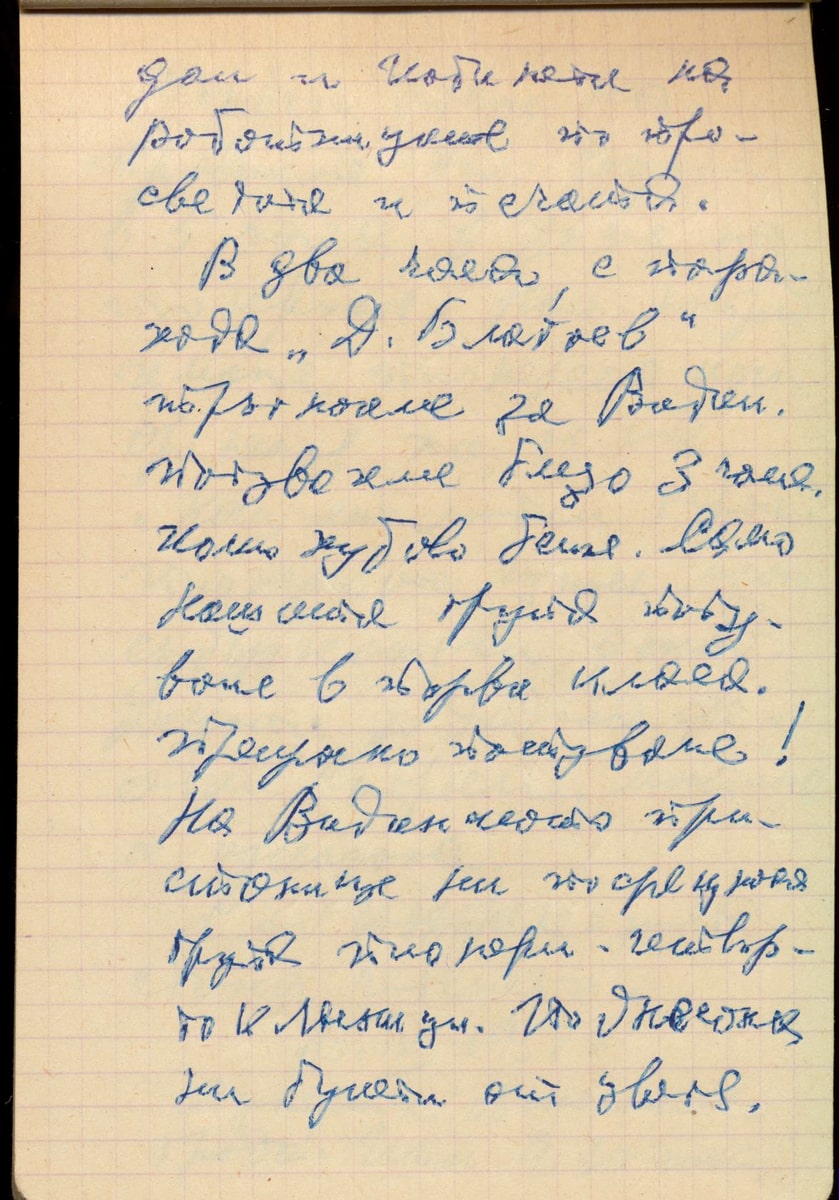 дом и кабинети на
работниците по про-
света и печата.
В два часа, с пара-
хода „Д. Благоев“
тръгнахме за Видин.
Пътувахме близо 3 часа.
Колко хубаво беше. Само
нашата група пъту-
ваше в първа класа.
Прекрасно пътуване!
На Видинското при-
станище ни посрещнаха
група пионери - четвър-
токласници. Поднесоха
ни букети от цветя.